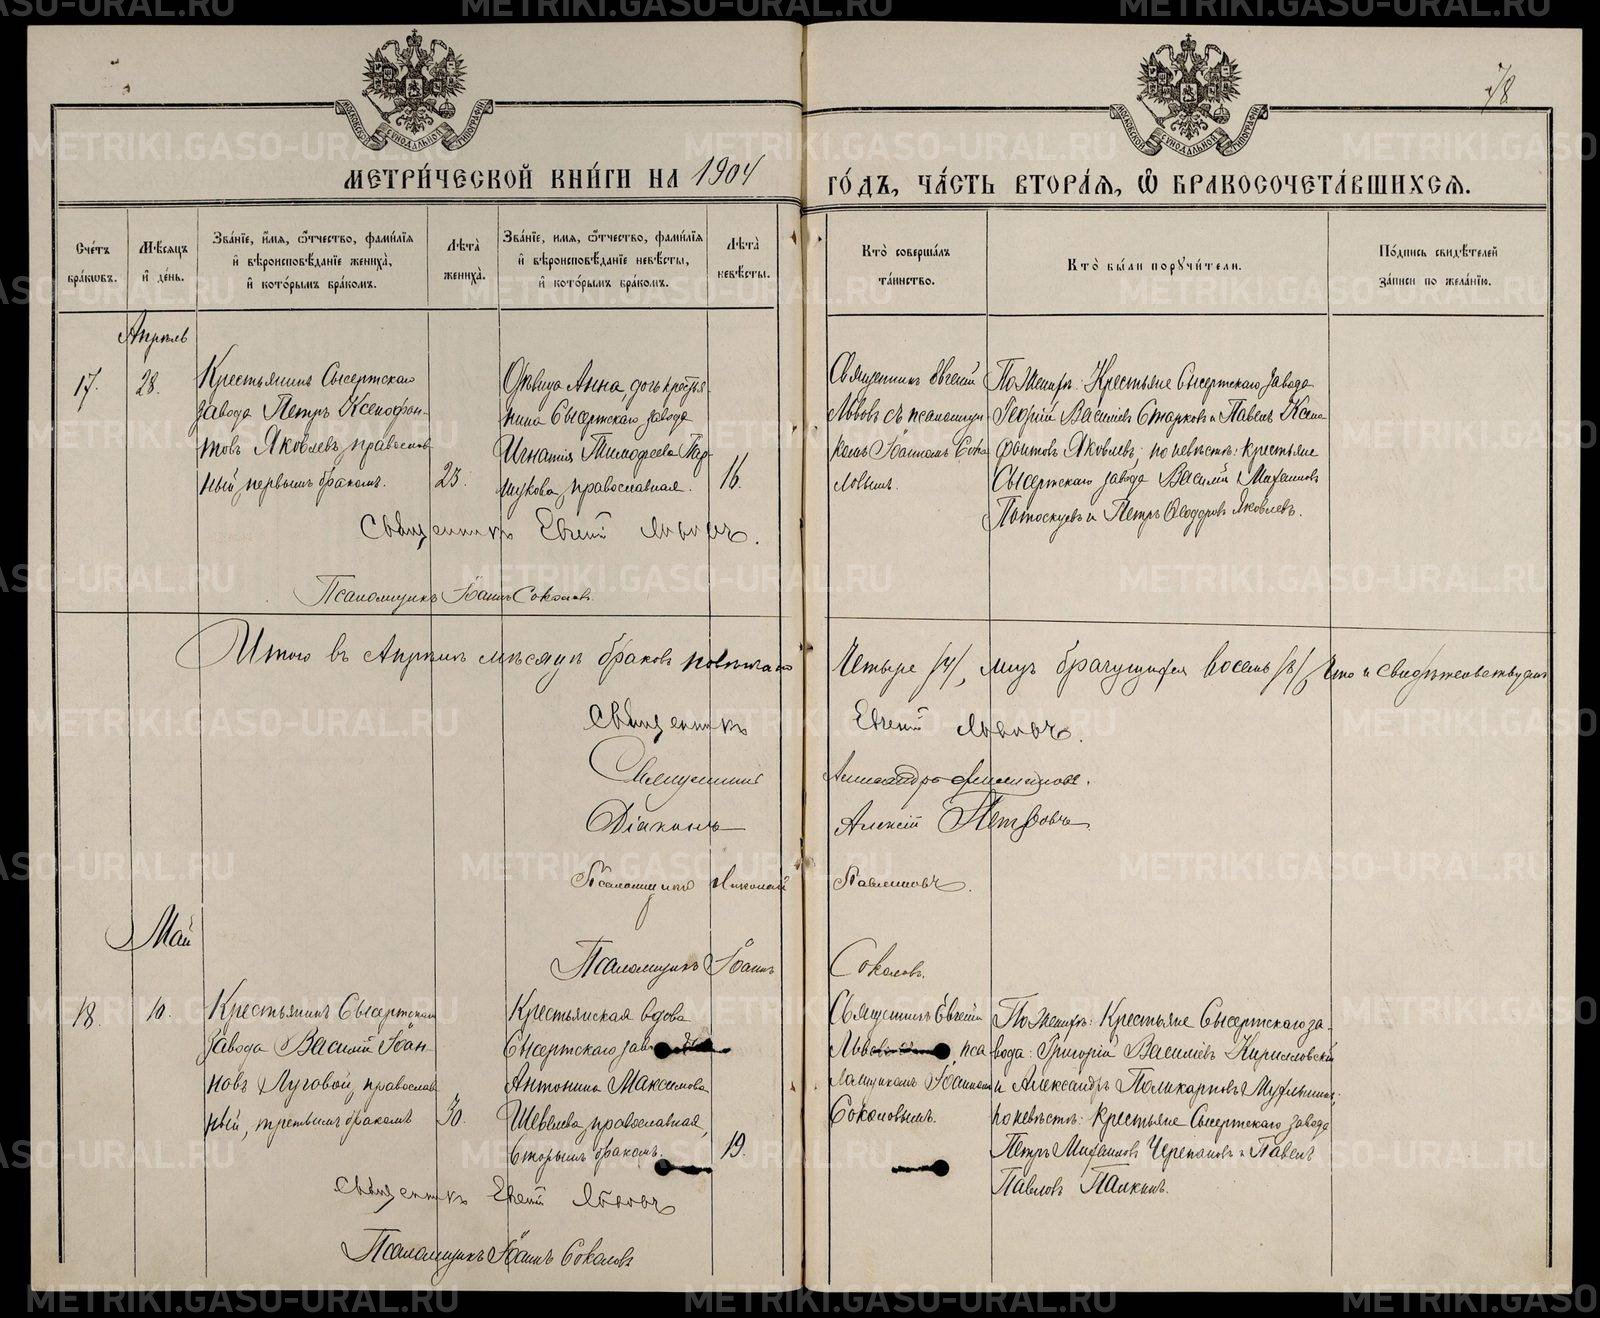 78
МОСКОВСКОЙ СѴНОДАЛЬНОЙ ТИПОГРАФІИ
МОСКОВСКОЙ СѴНОДАЛЬНОЙ ТИПОГРАФІИ
МЕТРИ́ЧЕСКОЙ КНИ́ГИ НА 1904 ГО́ДЪ, ЧА́СТЬ ВТОРА́Я, Ѡ҆ БРАКОСОЧЕТА́ВШИХСЯ.
Сче́тъ
бра́ковъ.
Мѣ́сяцъ
и҆ де́нь.
Зва́нїе, и҆́мя, ѻ҆́тчество, фами́лїя
и҆ вѣроисповѣ́данїе жениха̀,
и҆ кото́рымъ бра́комъ.
Лѣта̀
жениха̀.
Зва́нїе, и҆́мя, ѻ҆́тчество, фами́лїя
и҆ вѣроисповѣ́данїе невѣ́сты,
и҆ кото́рымъ бра́комъ.
Лѣта̀
невѣ́сты.
Кто̀ соверша́лъ
та́инство.
Кто̀ бы́ли порꙋчи́тели.
По́дпись свидѣ́телей
за́писи по жела́нїю.
Апрѣль
17.
28.
Крестьянинъ Сысертскаго
завода Петръ Ксенофон-
товъ Яковлевъ, православ
ный, первымъ бракомъ.
23.
Дѣвица Анна, дочь крестья
нина Сысертскаго завода
Игнатія Тимофеева Пар-
шукова, православная.
16.
Священникъ Евгеній
Львовъ съ псаломщи-
комъ Іоанномъ Соко
ловымъ.
По Женихѣ: Крестьяне Сысертскаго завода
Георгій Василіевъ Старковъ и Павелъ Ксено
фонтовъ Яковлевъ; по невѣстѣ: крестьяне
Сысертскаго завода Василій Михаиловъ
Потоскуевъ и Петръ Ѳеодоровъ Яковлевъ.
Священникъ Евгеній Львовъ.
Псаломщикъ Іоаннъ Соколовъ.
Итого въ Апрѣлѣ мѣсяцѣ браковъ повѣнчано Четыре /4/, лицъ брачущихся восемь /8/, Что и свидѣтельствуемъ
Священникъ Евгеній Львовъ.
Священникъ Александръ
Діаконъ Алексій Петровъ.
Псаломщикъ Николай Павлиновъ.
Май
Псаломщикъ Іоаннъ Соколовъ.
18.
10.
Крестьянинъ Сысертскаго
завода Василій Іоан-
новъ Луговой, православ
ный, третьимъ бракомъ
30.
Крестьянская вдова
Сысертскаго зав
Антонина Максимова
Шевелева, православная,
вторымъ бракомъ.
19.
Священникъ Евгеній
Львовъ пса
ломщикомъ Іоанномъ
Соколовымъ.
По Женихѣ: Крестьяне Сысертскаго за-
вода: Григорій Василіевъ Кирилловскій
и Александръ Поликарповъ
по невѣстѣ: Крестьяне Сысертскаго завода
Петръ Михаиловъ Черепановъ и Павелъ
Павловъ Палкинъ.
Священникъ Евгеній Львовъ
Псаломщикъ Іоаннъ Соколовъ
METRIKI.GASO-URAL.RU